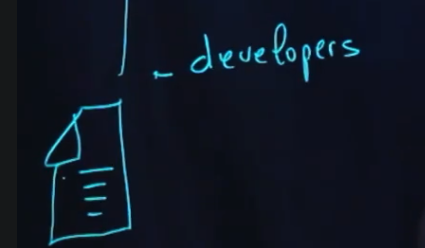 - developers